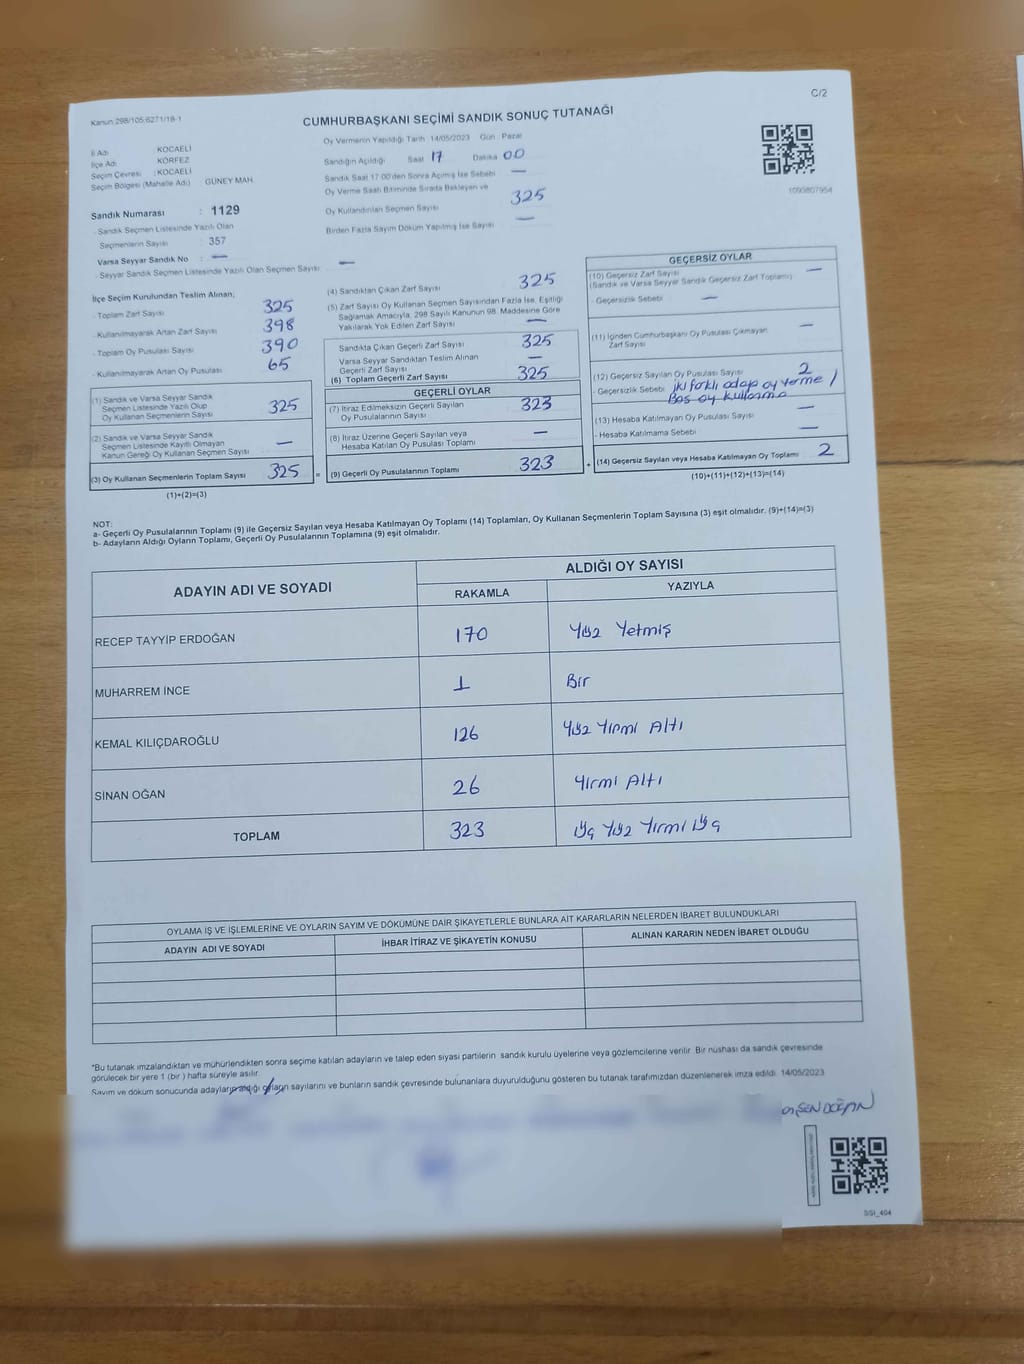 C/2
Kanun 298/105,6271/18-1
CUMHURBAŞKANI SEÇİMİ SANDIK SONUÇ TUTANAĞI
İl Adı : KOCAELİ
İlçe Adı : KÖRFEZ
Seçim Çevresi : KOCAELİ
Seçim Bölgesi (Mahalle Adı) GÜNEY MAH.
Sandık Numarası : 1129
- Sandık Seçmen Listesinde Yazılı Olan
Seçmenlerin Sayısı : 357
Varsa Seyyar Sandık No : —
- Seyyar Sandık Seçmen Listesinde Yazılı Olan Seçmen Sayısı —
Oy Vermenin Yapıldığı Tarih 14/05/2023 Gün : Pazar
Sandığın Açıldığı Saat 17 Dakika 00
Sandık Saat 17:00'den Sonra Açılmış İse Sebebi —
Oy Verme Saati Bitiminde Sırada Bekleyen ve
Oy Kullandırılan Seçmen Sayısı 325
Birden Fazla Sayım Döküm Yapılmış İse Sayısı —
1093807954
İlçe Seçim Kurulundan Teslim Alınan;
- Toplam Zarf Sayısı 325
- Kullanılmayarak Artan Zarf Sayısı 398
- Toplam Oy Pusulası Sayısı 390
- Kullanılmayarak Artan Oy Pusulası 65
(1) Sandık ve Varsa Seyyar Sandık
Seçmen Listesinde Yazılı Olup
Oy Kullanan Seçmenlerin Sayısı 325
(2) Sandık ve Varsa Seyyar Sandık
Seçmen Listesinde Kayıtlı Olmayan
Kanun Gereği Oy Kullanan Seçmen Sayısı —
(3) Oy Kullanan Seçmenlerin Toplam Sayısı 325 =
(1)+(2)=(3)
(4) Sandıktan Çıkan Zarf Sayısı 325
(5) Zarf Sayısı Oy Kullanan Seçmen Sayısından Fazla İse, Eşitliği
Sağlamak Amacıyla, 298 Sayılı Kanunun 98. Maddesine Göre
Yakılarak Yok Edilen Zarf Sayısı —
Sandıkta Çıkan Geçerli Zarf Sayısı 325
Varsa Seyyar Sandıktan Teslim Alınan
Geçerli Zarf Sayısı —
(6) Toplam Geçerli Zarf Sayısı 325
GEÇERLİ OYLAR
(7) İtiraz Edilmeksizin Geçerli Sayılan
Oy Pusulalarının Sayısı 323
(8) İtiraz Üzerine Geçerli Sayılan veya
Hesaba Katılan Oy Pusulası Toplamı —
(9) Geçerli Oy Pusulalarının Toplamı 323 +
GEÇERSİZ OYLAR
(10) Geçersiz Zarf Sayısı
(Sandık ve Varsa Seyyar Sandık Geçersiz Zarf Toplamı) —
- Geçersizlik Sebebi —
(11) İçinden Cumhurbaşkanı Oy Pusulası Çıkmayan
Zarf Sayısı —
(12) Geçersiz Sayılan Oy Pusulası Sayısı 2
- Geçersizlik Sebebi iki farklı adaya oy verme /
Boş oy kullanma
(13) Hesaba Katılmayan Oy Pusulası Sayısı —
- Hesaba Katılmama Sebebi —
(14) Geçersiz Sayılan veya Hesaba Katılmayan Oy Toplamı 2
(10)+(11)+(12)+(13)=(14)
NOT:
a- Geçerli Oy Pusulalarının Toplamı (9) ile Geçersiz Sayılan veya Hesaba Katılmayan Oy Toplamı (14) Toplamları, Oy Kullanan Seçmenlerin Toplam Sayısına (3) eşit olmalıdır. (9)+(14)=(3)
b- Adayların Aldığı Oyların Toplamı, Geçerli Oy Pusulalarının Toplamına (9) eşit olmalıdır.
ADAYIN ADI VE SOYADI
ALDIĞI OY SAYISI
RAKAMLA YAZIYLA
RECEP TAYYİP ERDOĞAN 170 Yüz Yetmiş
MUHARREM İNCE 1 Bir
KEMAL KILIÇDAROĞLU 126 Yüz Yirmi Altı
SİNAN OĞAN 26 Yirmi Altı
TOPLAM 323 Üç Yüz Yirmi Üç
OYLAMA İŞ VE İŞLEMLERİNE VE OYLARIN SAYIM VE DÖKÜMÜNE DAİR ŞİKAYETLERLE BUNLARA AİT KARARLARIN NELERDEN İBARET BULUNDUKLARI
ADAYIN ADI VE SOYADI İHBAR İTİRAZ VE ŞİKAYETİN KONUSU ALINAN KARARIN NEDEN İBARET OLDUĞU
*Bu tutanak imzalandıktan ve mühürlendikten sonra seçime katılan adayların ve talep eden siyasi partilerin sandık kurulu üyelerine veya gözlemcilerine verilir. Bir nüshası da sandık çevresinde
görülecek bir yere 1 (bir) hafta süreyle asılır.
Sayım ve döküm sonucunda adayların aldığı oyların sayılarını ve bunların sandık çevresinde bulunanlara duyurulduğunu gösteren bu tutanak tarafımızdan düzenlenerek imza edildi. 14/05/2023
DOĞAN
SSI_404